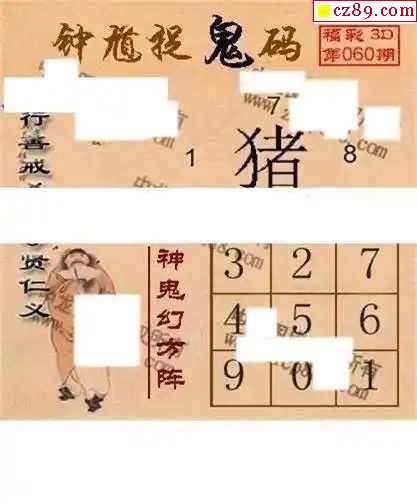 cz89.com
钟馗捉鬼码
福彩3D
第060期
7
1 猪 8
行善戒
贤仁义
神鬼幻方阵
3 2 7
4 5 6
9 0 1